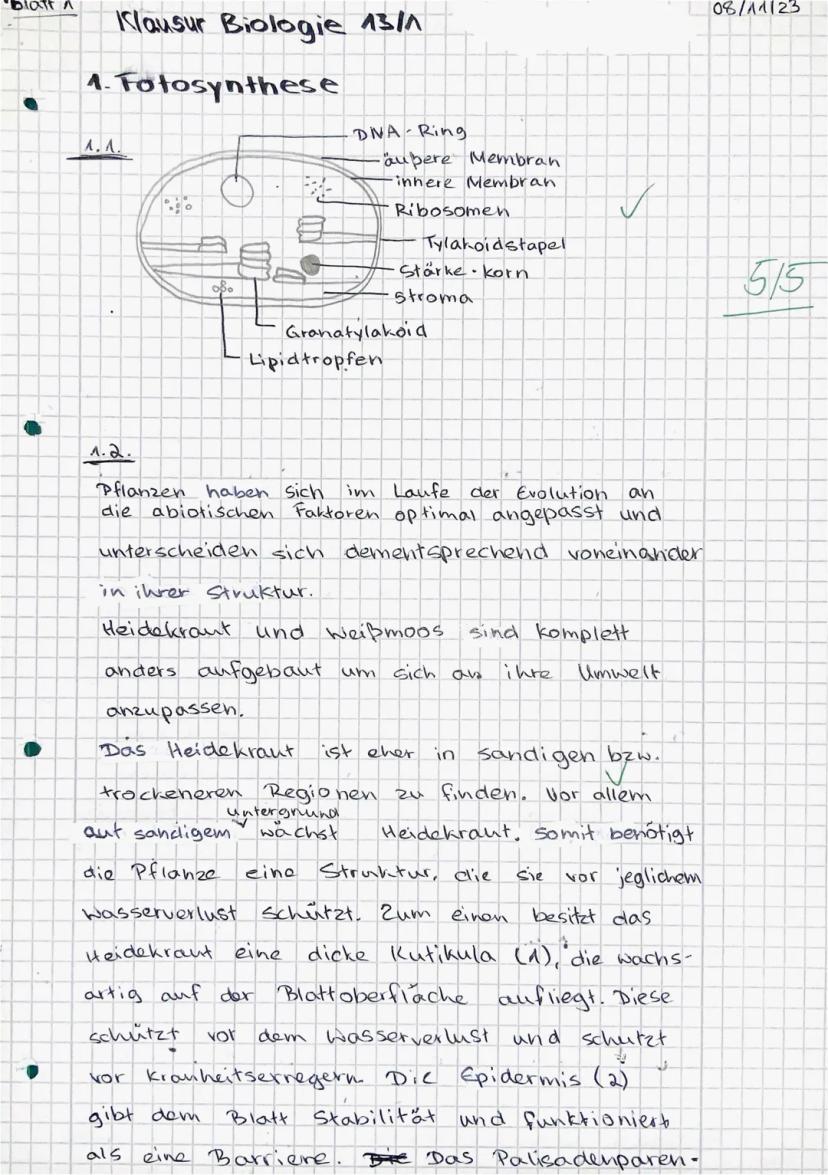 Blatt 1
08/11/23
Klausur Biologie 13/1
1. Fotosynthese
1.1.
DNA-Ring
äußere Membran
innere Membran
Ribosomen
Tylakoidstapel
Stärke-korn
Stroma
Granatylakoid
Lipidtropfen
5/5
1.2.
Pflanzen haben sich im Laufe der Evolution an
die abiotischen Faktoren optimal angepasst und
unterscheiden sich dementsprechend voneinander
in ihrer Struktur.
Heidekraut und Weißmoos sind komplett
anders aufgebaut um sich an ihre Umwelt
anzupassen.
Das Heidekraut ist eher in sandigen bzw.
trockeneren Regionen zu finden. Vor allem
untergrund
auf sandigem wächst Heidekraut. Somit benötigt
die Pflanze eine Struktur, die sie vor jeglichem
Wasserverlust schützt. Zum einen besitzt das
Heidekraut eine dicke Kutikula (1), die wachs-
artig auf der Blattoberfläche aufliegt. Diese
schützt vor dem Wasserverlust und schützt
vor Krankheitserregern. Die Epidermis (2)
gibt dem Blatt Stabilität und funktioniert
als eine Barriere. Die Das Palisadenparen-